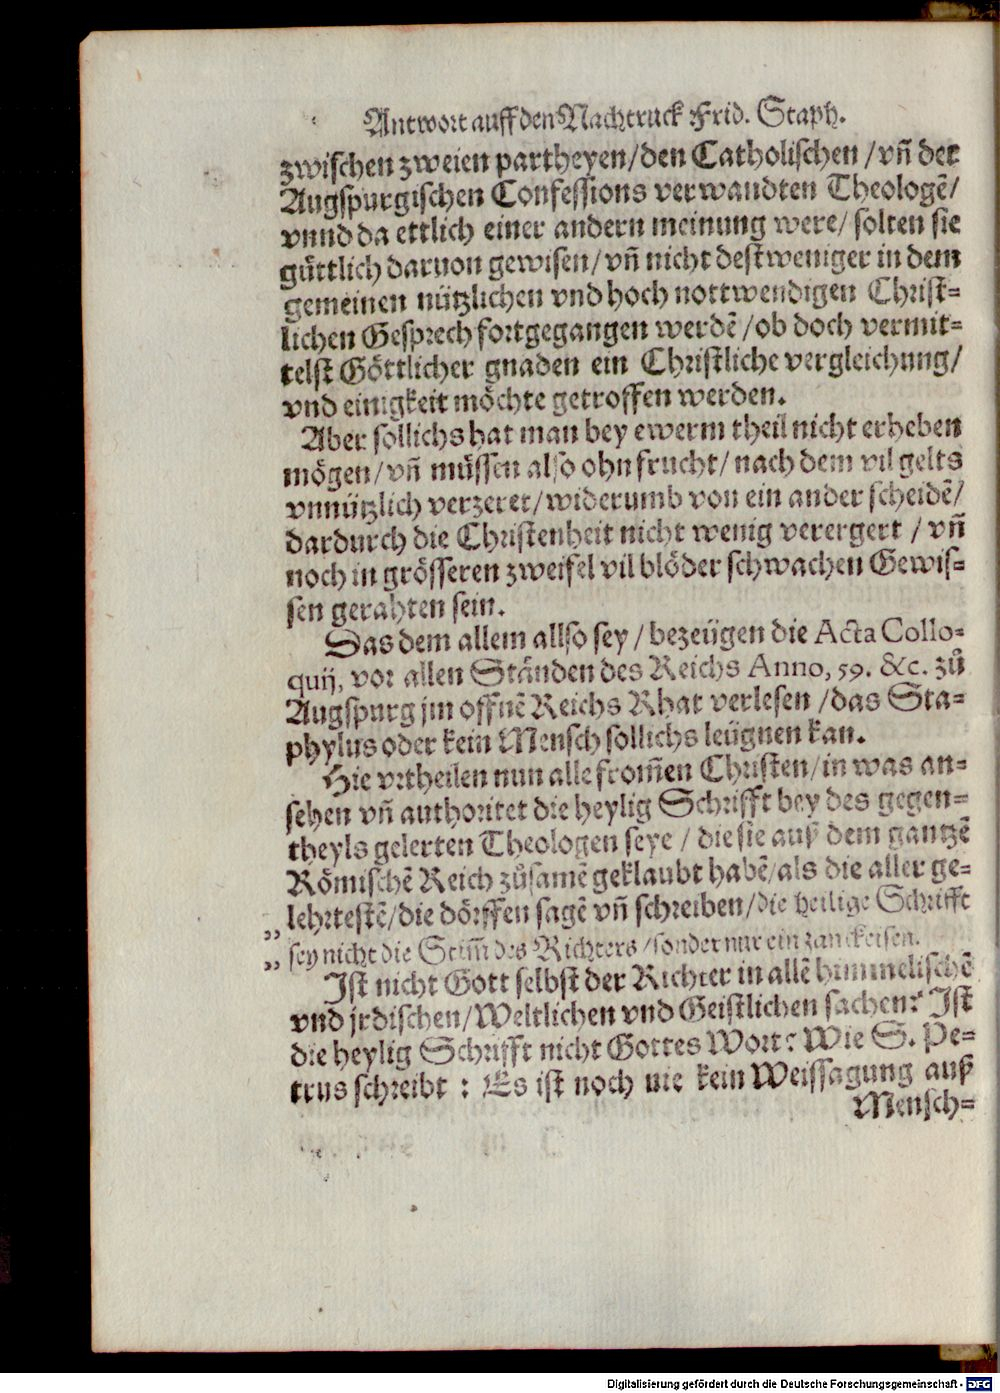 Antwort auff den Nachtruck Frid. Staph.
zwischen zweien partheyen/den Catholischen /vn̄ der
Augspurgischen Confessions verwandten Theologē/
vnnd da ettlich einer andern meinung were/ solten sie
guͤttlich daruon gewisen/vn̄ nicht destweniger in dem
gemeinen nuͤtzlichen vnd hoch nottwendigen Christ-
lichen Gesprech fortgegangen werdē /ob doch vermit-
telst Goͤttlicher gnaden ein Christliche vergleichung/
vnd einigkeit moͤchte getroffen werden.
Aber sollichs hat man bey ewerm theil nicht erheben
moͤgen/vn̄ muͤssen also ohn frucht/nach dem vil gelts
vnnuͤtzlich verzeret/widerumb von ein ander scheidē/
dardurch die Christenheit nicht wenig verergert /vn̄
noch in groͤsseren zweifel vil bloͤder schwachen Gewis-
sen gerahten sein.
Das dem allem allso sey /bezeuͤgen die Acta Collo-
quij, vor allen Staͤnden des Reichs Anno, 59. &c. zuͦ
Augspurg jm offnē Reichs Rhat verlesen /das Sta-
phylus oder kein Mensch sollichs leuͤgnen kan.
Hie vrtheilen nun alle from̄en Christen/in was an-
sehen vn̄ authoritet die heylig Schrifft bey des gegen-
theyls gelerten Theologen seye /die sie auß dem gantzē
Roͤmischē Reich zuͦsamē geklaubt habē/als die aller ge-
lehrtestē/die doͤrffen sagē vn̄ schreiben/die heilige Schrifft
„ sey nicht die Stim̄ des Richters /sonder nur ein zanckeisen.
„ Ist nicht Gott selbst der Richter in allē himmelischē
vnd jrdischen/Weltlichen vnd Geistlichen sachen? Ist
die heylig Schrifft nicht Gottes Wort? Wie S. Pe-
trus schreibt : Es ist noch nie kein Weissagung auß
Mensch-
Digitalisierung gefördert durch die Deutsche Forschungsgemeinschaft - DFG